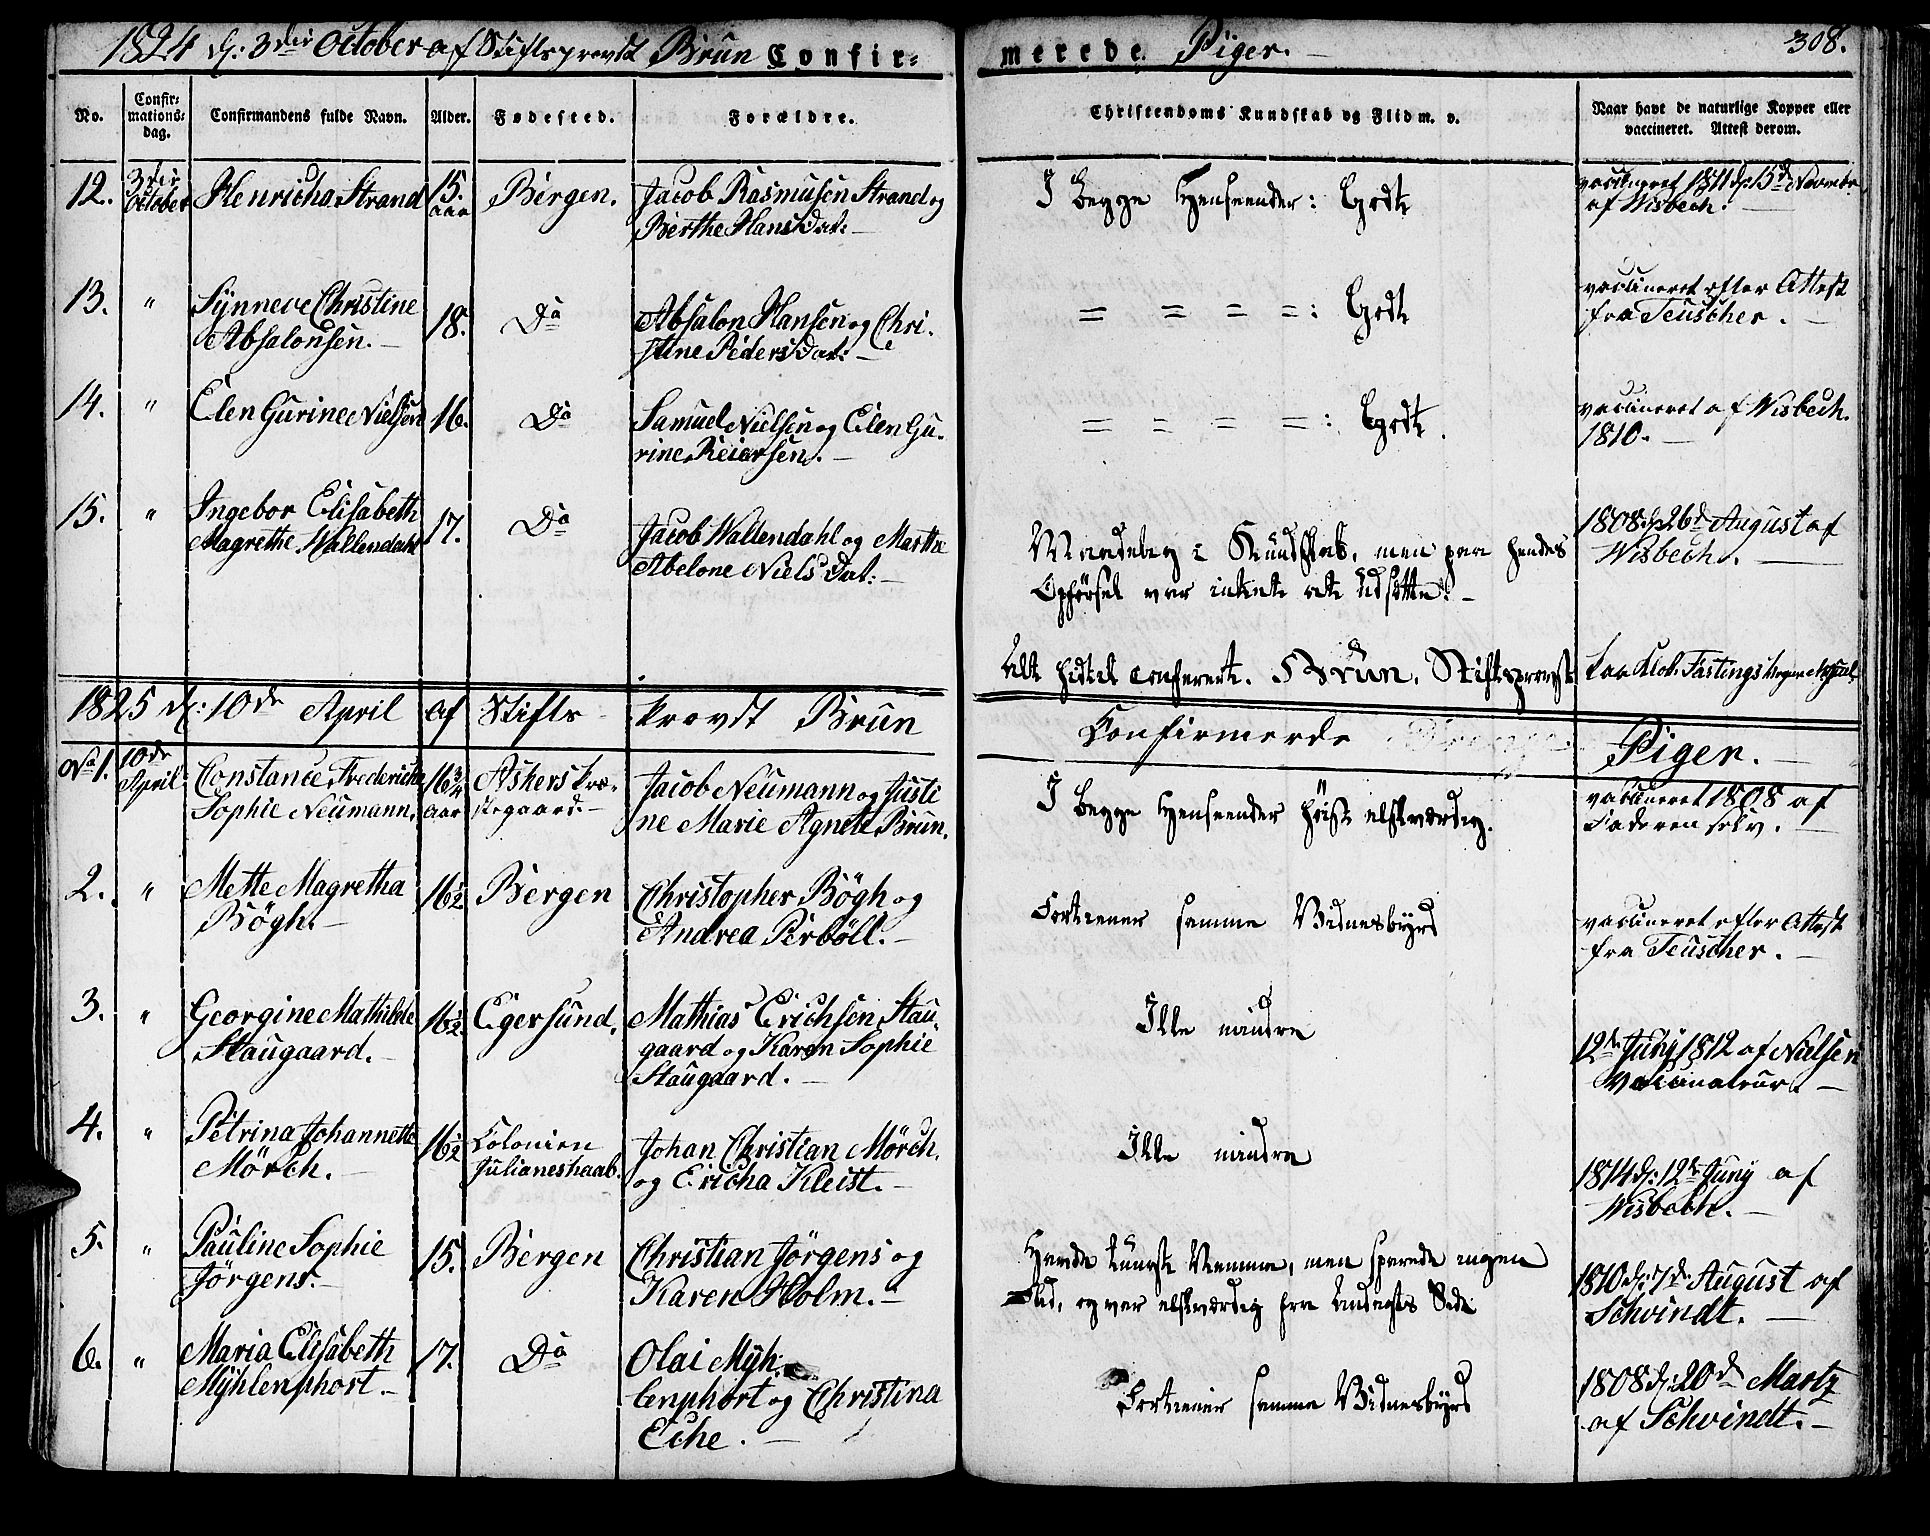 1824 d: 3die October af Stiftsprovst Brun Confir-
merede Piger.
308.
No.
Confir-
mations-
dag.
Confirmandens fulde Navn.
Alder.
Fødested.
Forældre.
Christendoms Kundskab og Flid m. v.
Naar havt de naturlige Kopper eller
vaccineret. Attest derom.
12. 3die October Henricha Strand 15. aar Bergen. Jacob Rasmusen Strand og
Berthe Hans Dat:
I Begge Henseender: Godt
vaccineret 1811 d: 15d November
af Wisbech.
13. " Synneve Christine
Absalonsen. 18. Do Absalon Hansen og Chri-
stine Peders Dat:
= = = =: Godt
vaccineret efter Attest
fra Teuscher.
14. " Elen Gurine Nielsen 16. Do Samuel Nielsen og Elen Gu-
rine Reiersen.
= = = =: Godt.
vaccineret af Wisbech.
1810.
15. " Ingebor Elisabeth
Magrethe Wallendahl 17. Do Jacob Wallendahl og Marthe
Abelone Niels Dat:
Maadelig i Kundskab, men paa hendes
Opførsel var intet at udsætte.
1808 d: 26d August af
Wisbech.
Alt hidtil conferert. Brun, Stiftsprovst
1825 d: 10de April af Stifts-
provst Brun
Confirmerde
Piger.
No 1. 10de April Constance Fredericha
Sophie Neumann. 16 3/4 aar Askers Præ-
stegaard. Jacob Neumann og Justi
ne Marie Agnete Brun.
I Begge Hensender høist elskværdig.
vaccineret 1808 af
Faderen selv.
2. " Mette Magretha
Bögh. 16 1/2 Bergen Christopher Bögh og
Andrea Perböll.
Fortiener samme Vidnesbyrd
vaccineret efter Attest
fra Teuscher.
3. " Georgine Mathilde
Staugaard. 16 1/2 Egersund. Mathias Erichsen Stau-
gaard og Karen Sophie
Staugaard.
Ikke mindre
12te Juny 1812 af Nielsen
Vaccinateur.
4. " Petrina Johannette
Mörch. 16 1/2 Colonien
Julianeshaab. Johan Christian Mörch,
og Ericha Kleist.
Ikke mindre
1814 d: 12te Juny af
Wisbech.
5. " Pauline Sophie
Jörgens. 15. Bergen Christian Jörgens og
Karen Holm.
Havde Nemme, men sparede ingen
Flid, og var elskværdig fra Andagts Side
1810 d: 7d: August af
Schvindt.
6. " Maria Elisabeth
Mÿhlenphort 17. Do Olai Mÿh-
lenphort og Christina
Eche.
Fortiener samme Vidnesbyrd
1808 d: 20d Martz
af Schvindt.